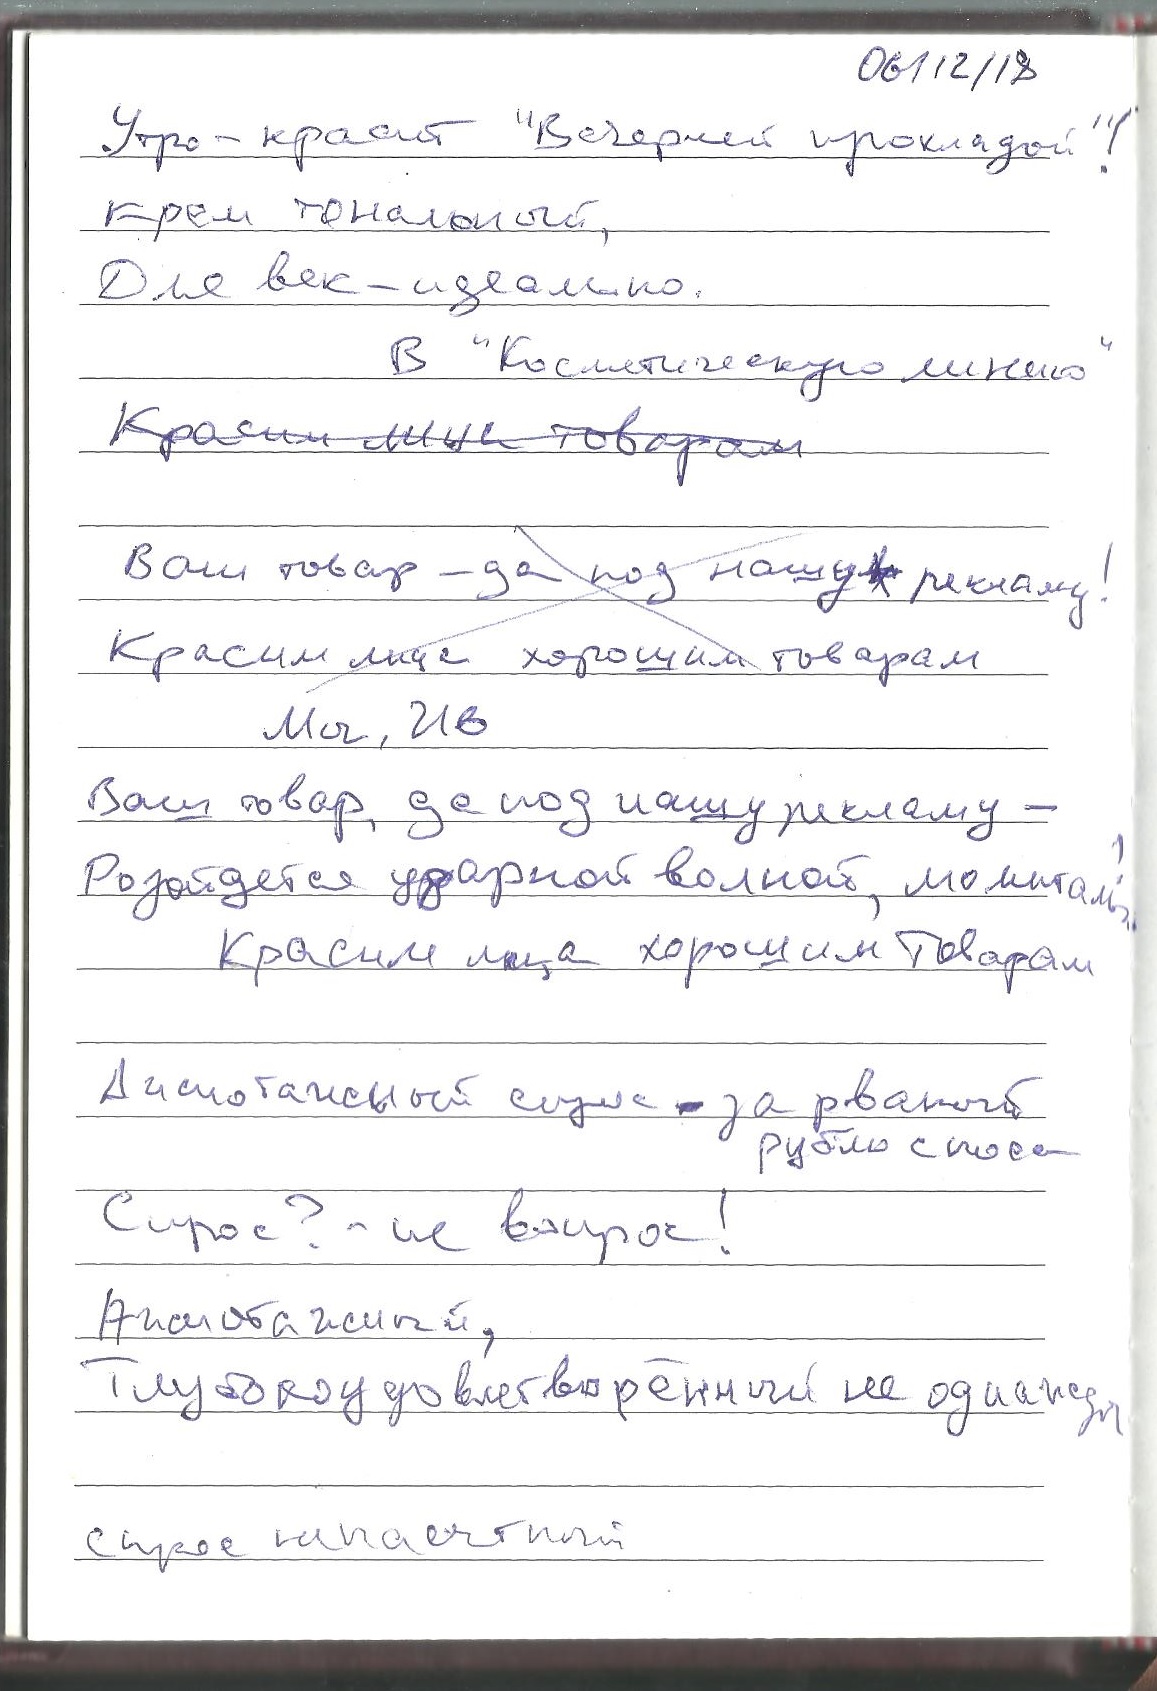 06/12/18
Утро – красит "Вечерней прокладой"!
Крем тональный,
Для век – идеально.
В "Косметическую линию"
Красим лица товарам
Ваш товар – да под нашу рекламу!
Красим лица хорошим товарам
Мы, Ив
Ваш товар, да под нашу рекламу –
Розойдется ударной волной,
Красим лица хорошим Товарам
Ажиотажный спрос - за рваной
рублю
Спрос? - не вопрос!
Ажиотажный,
Глубокоудовлетворённый не однажды
спрос